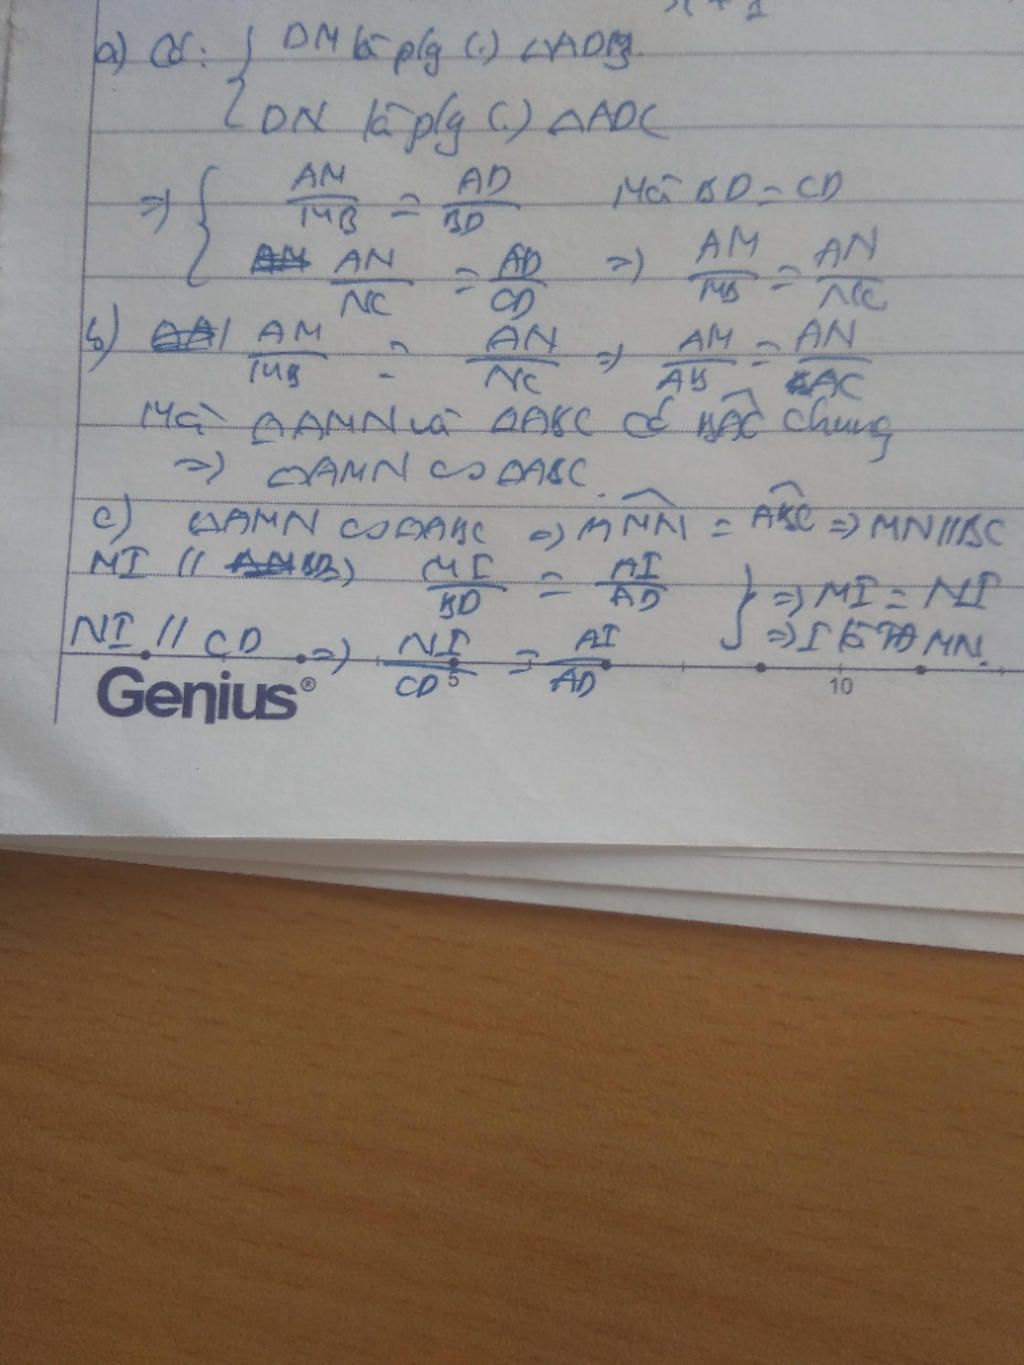 x + 1
a) Có: { DM là p/g (.) △ADB.
{ DN là p/g (.) △ADC
=> { AM/MB = AD/BD Mà BD = CD
AN/NC = AD/CD => AM/MB = AN/NC
b) AM/MB = AN/NC => AM/AB = AN/AC
Mà △AMN và △ABC có BAC chung
=> △AMN ∽ △ABC.
c) △AMN ∽ △ABC => AMN = ABC => MN // BC
MI // BD => MI/BD = AI/AD } => MI = NI
NI // CD => NI/CD = AI/AD } => I là TĐ MN.
Genius® 5 10